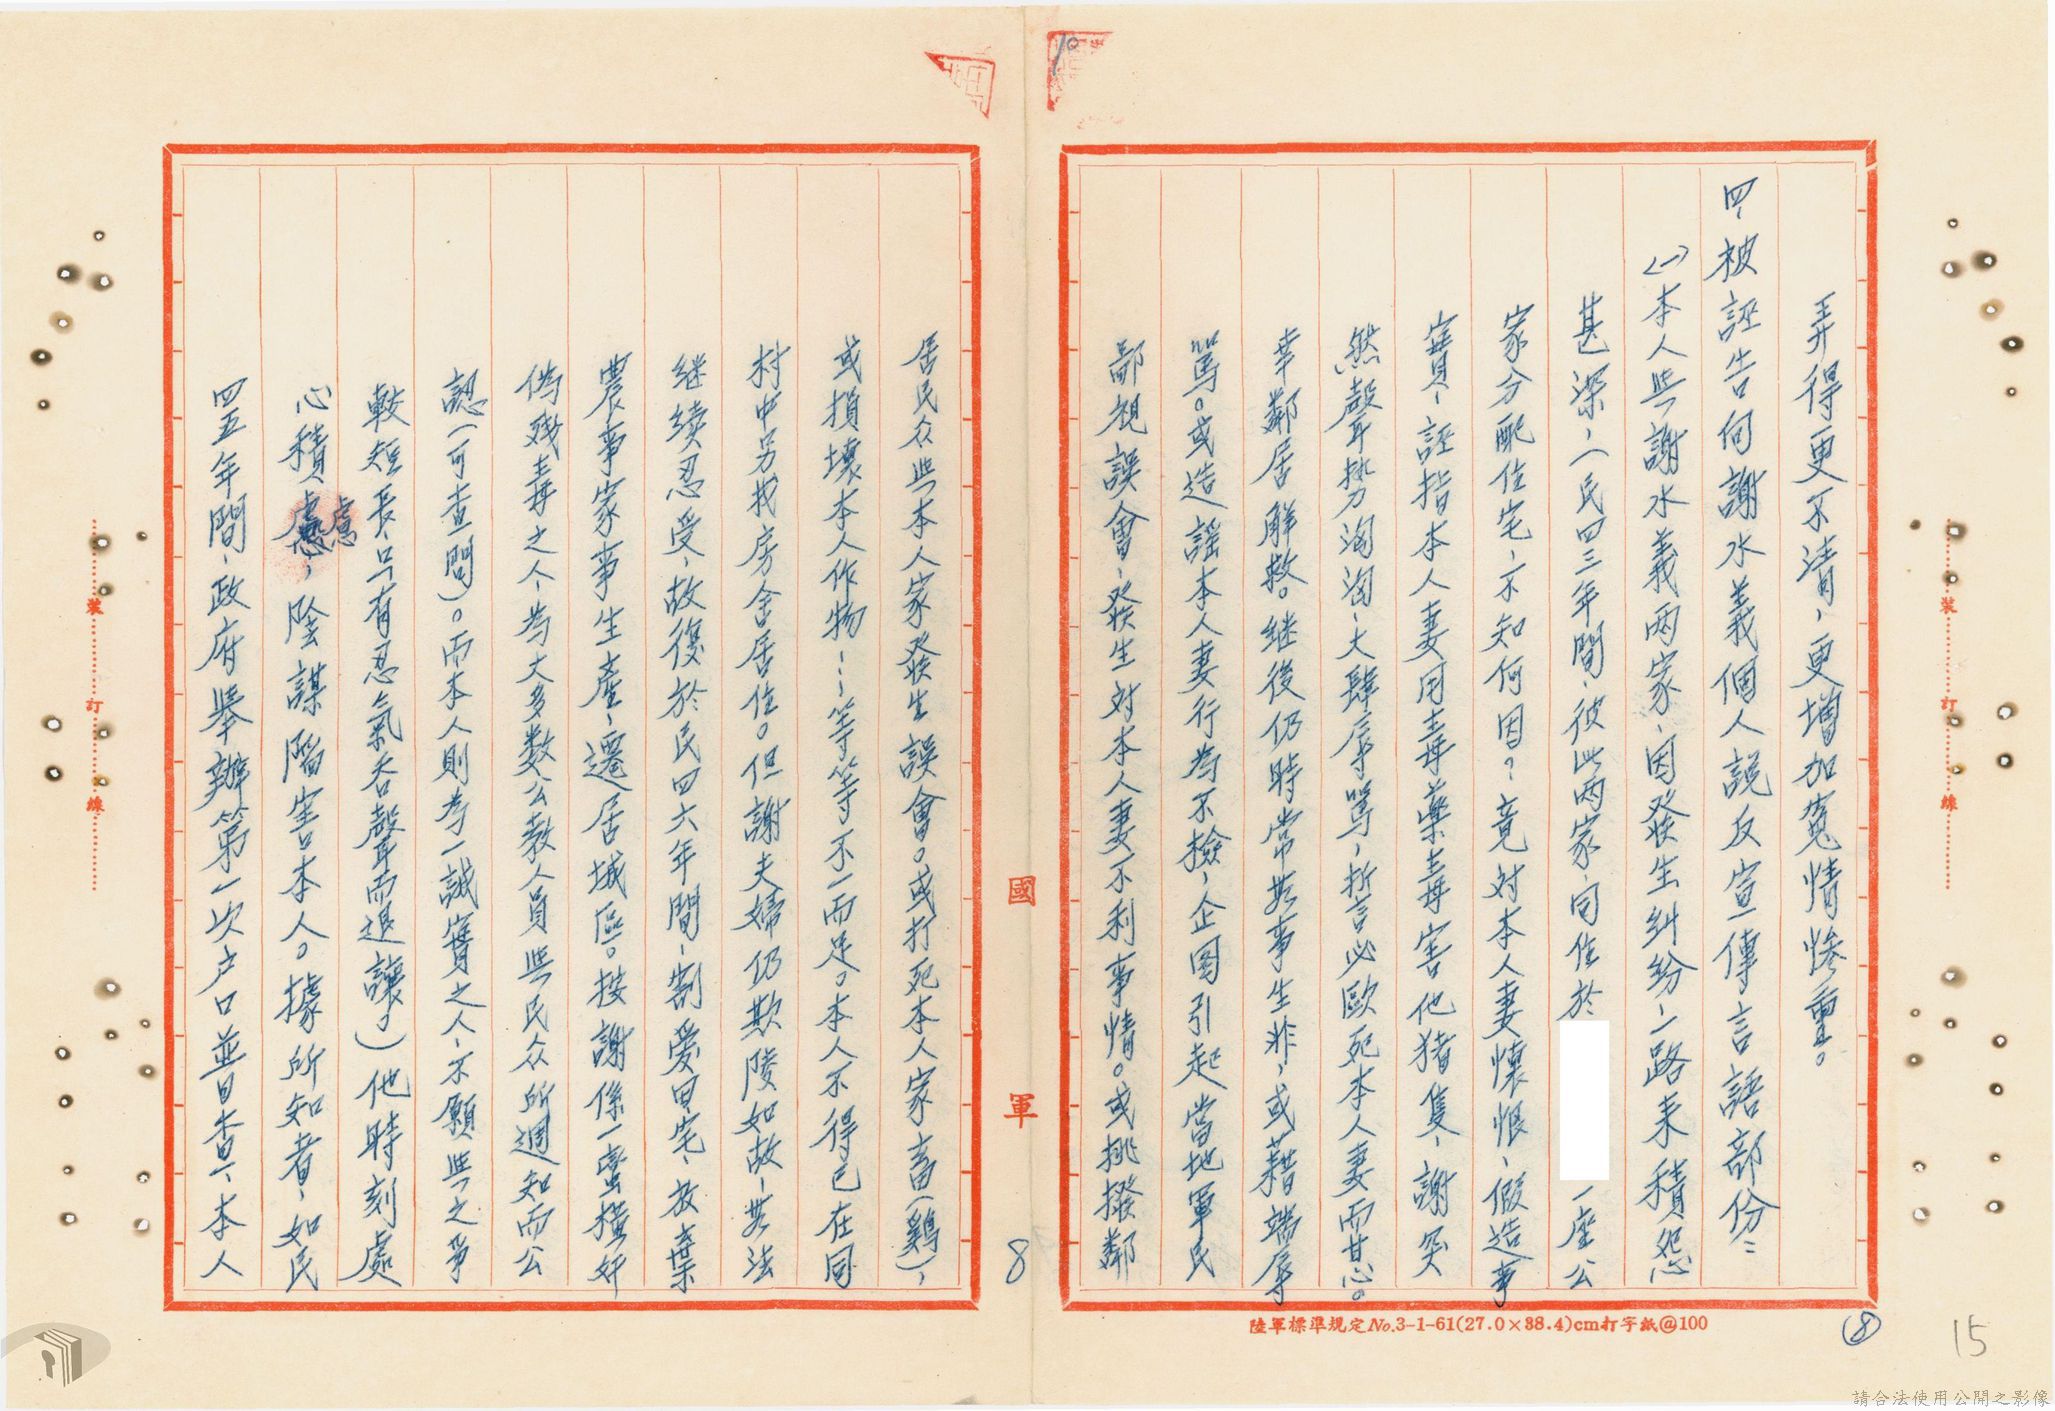 弄得更不清，更增加冤情慘重。
四、被誣告向謝水義個人說反宣傳言語部份：
(一)本人與謝水義兩家，因發生糾紛，一路来積怨
甚深，（民四三年間，彼此兩家，同住於
一座公
家分配住宅，不知何因？竟对本人妻懷恨，假造事
實，誣指本人妻用毒藥毒害他猪隻，謝突
然聲勢洶洶，大肆辱罵，折言必歐死本人妻而甘心。
幸鄰居解救。继後仍時常無事生非，或藉端辱
罵。或造謡本人妻行為不檢，企图引起當地軍民
鄙視誤會，發生对本人妻不利事情。或挑撥鄰
居民众與本人家發生誤會。或打死本人家畜（鷄），
或損壞本人作物……等等不一而足。本人不得已在同
村中另找房舍居住。但謝夫婦仍欺陵如故，無法
继续忍受，故復於民四六年間，割爱田宅，放棄
農事家事生產，遷居城區。按謝係一蛮橫奸
偽残毒之人，為大多数公教人員與民众所週知而公
認（可查問）。而本人則為一誠實之人，不願與之爭
較短長，只有忍氣吞聲而退讓了）他時刻處
心積慮
慮，陰謀陷害本人。據所知者，如民
四五年間，政府举辦第一次户口並日查，本人
國軍
8
⑧
15
10
陸軍標準規定No.3-1-61(27.0×38.4)cm打字紙@100
裝訂線
裝訂線
請合法使用公開之影像